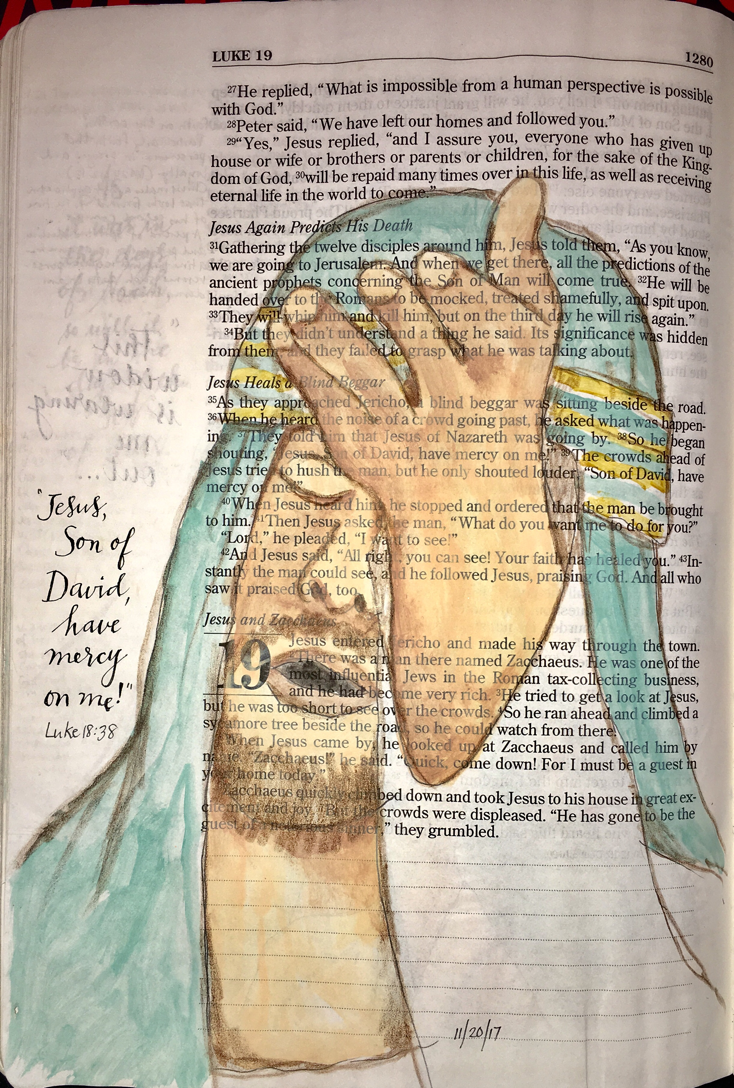 LUKE 19 1280
27He replied, “What is impossible from a human perspective is possible
with God.”
28Peter said, “We have left our homes and followed you.”
29“Yes,” Jesus replied, “and I assure you, everyone who has given up
house or wife or brothers or parents or children, for the sake of the King-
dom of God, 30will be repaid many times over in this life, as well as receiving
eternal life in the world to come.”
Jesus Again Predicts His Death
31Gathering the twelve disciples around him, Jesus told them, “As you know,
we are going to Jerusalem. And when we get there, all the predictions of the
ancient prophets concerning the Son of Man will come true. 32He will be
handed over to the Romans to be mocked, treated shamefully, and spit upon.
33They will whip him and kill him, but on the third day he will rise again.”
34But they didn’t understand a thing he said. Its significance was hidden
from them, and they failed to grasp what he was talking about.
Jesus Heals a Blind Beggar
35As they approached Jericho, a blind beggar was sitting beside the road.
36When he heard the noise of a crowd going past, he asked what was happen-
ing. 37They told him that Jesus of Nazareth was going by. 38So he began
shouting, “Jesus, Son of David, have mercy on me!” 39The crowds ahead of
Jesus tried to hush the man, but he only shouted louder, “Son of David, have
mercy on me!”
40When Jesus heard him, he stopped and ordered that the man be brought
to him. 41Then Jesus asked the man, “What do you want me to do for you?”
“Lord,” he pleaded, “I want to see!”
42And Jesus said, “All right, you can see! Your faith has healed you.” 43In-
stantly the man could see, and he followed Jesus, praising God. And all who
saw it praised God, too.
Jesus and Zacchaeus
19 Jesus entered Jericho and made his way through the town.
2There was a man there named Zacchaeus. He was one of the
most influential Jews in the Roman tax-collecting business,
and he had become very rich. 3He tried to get a look at Jesus,
but he was too short to see over the crowds. 4So he ran ahead and climbed a
sycamore tree beside the road, so he could watch from there.
5When Jesus came by, he looked up at Zacchaeus and called him by
name. “Zacchaeus!” he said. “Quick, come down! For I must be a guest in
your home today.”
6Zacchaeus quickly climbed down and took Jesus to his house in great ex-
citement and joy. 7But the crowds were displeased. “He has gone to be the
guest of a notorious sinner,” they grumbled.
"Jesus,
Son of
David,
have
mercy
on me!"
Luke 18:38
11/20/17